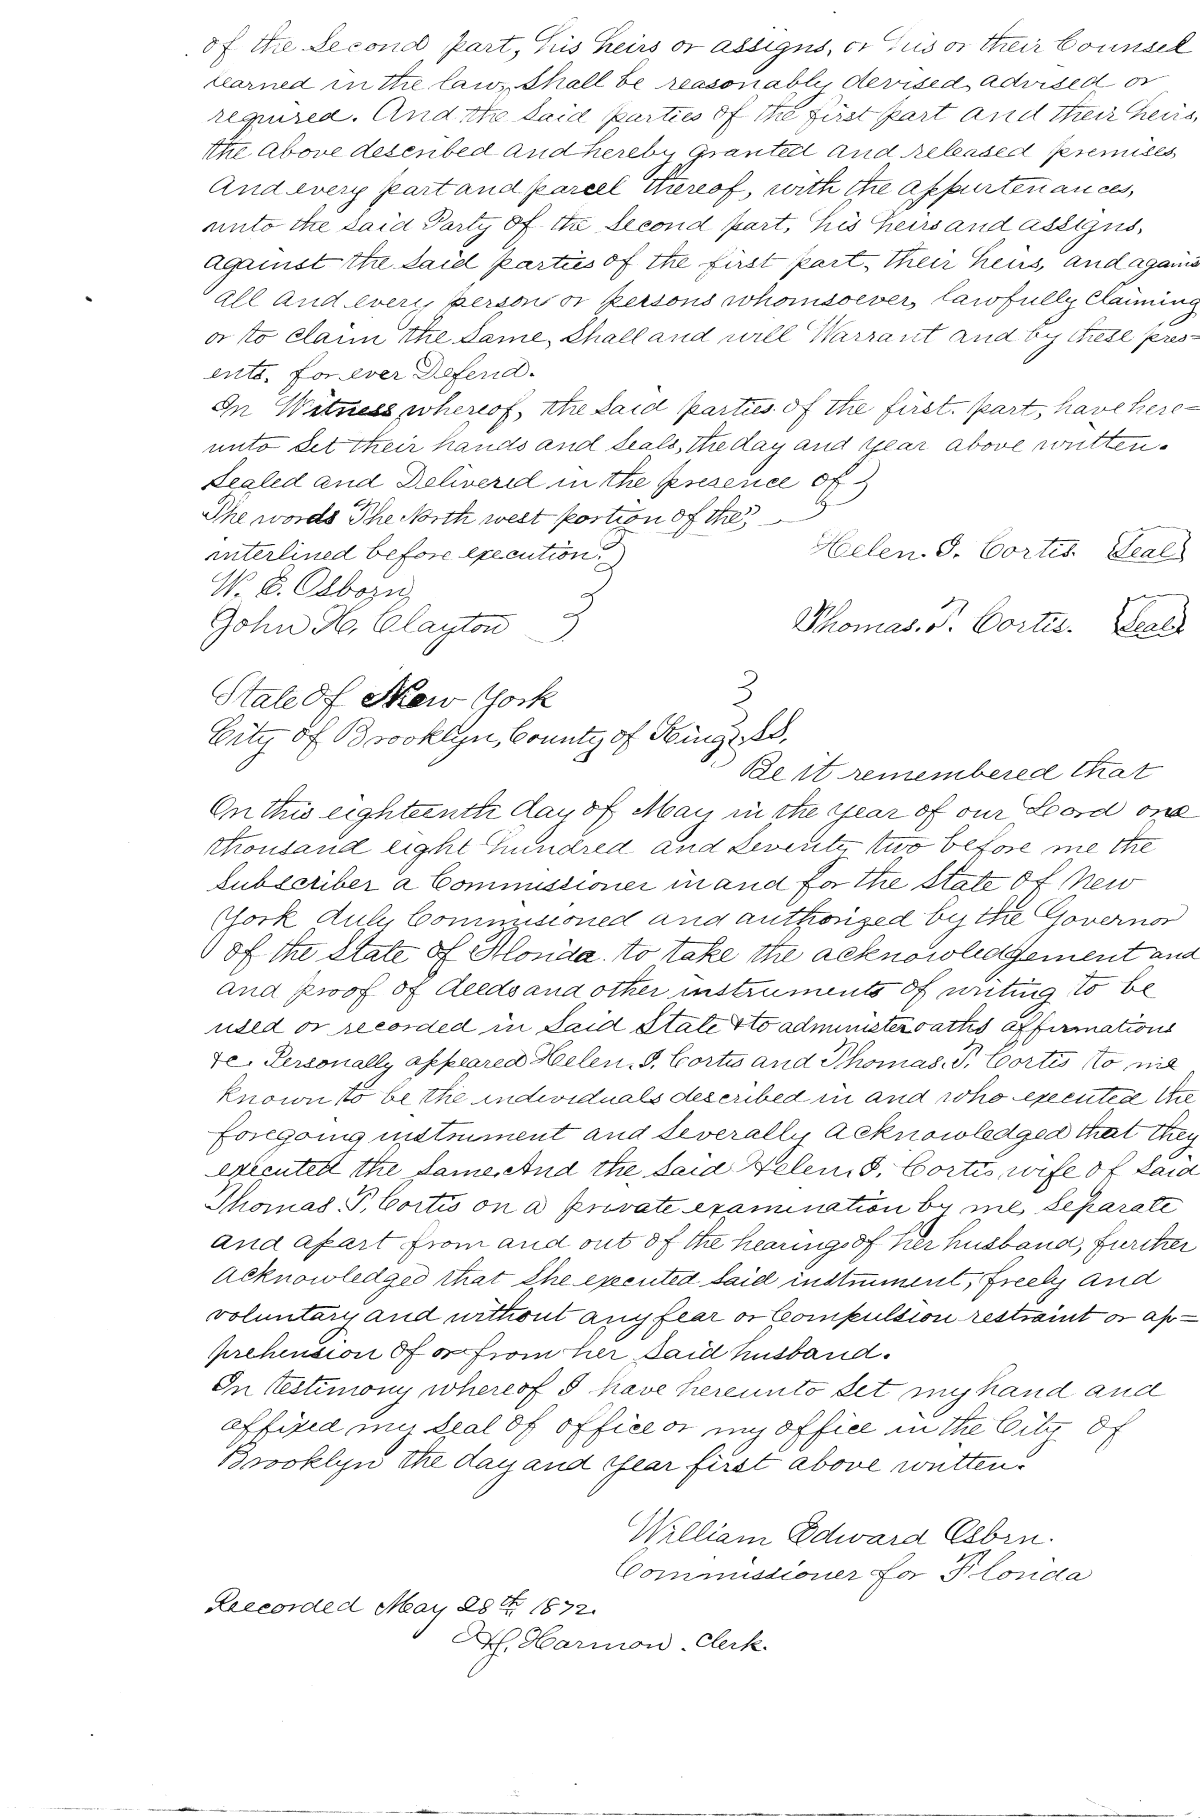 of the Second part, his heirs or assigns, or his or their Counsel
learned in the law, Shall be reasonably devised, advised or
required. And the Said parties of the first part and their heirs,
the above described and hereby granted and released premises
And every part and parcel thereof, with the appurtenances,
unto the Said Party of the Second part, his heirs and assigns,
against the Said parties of the first part, their heirs, and agains
all and every person or persons whomsoever, lawfully Claiming
or to claim the Same, Shall and will Warrant and by these pres=
ents, for ever Defend.
In Witness whereof, the Said parties of the first part, have here=
unto Set their hands and Seals, the day and year above written.
Sealed and Delivered in the presence of
The words "The North west portion of the"
interlined before execution.
Helen. I. Cortis. Seal
W. E. Osborn
John H. Clayton
Thomas. P. Cortis. Seal
State of New York
City of Brooklyn, County of Kings, SS,
Be it remembered that
On this eighteenth day of May in the year of our Lord one
thousand eight hundred and Seventy two before me the
Subscriber a Commissioner in and for the State of New
York duly Commisioned and authorized by the Governor
of the State of Florida. to take the acknowledgement and
and proof of deeds and other instruments of writing to be
used or recorded in Said State & to administer oaths affirmations
&c. Personally appeared Helen. I. Cortis and Thomas. P. Cortis to me
known to be the individuals described in and who executed the
foregoing instrument and Severally acknowledged that they
executed the Same. And the Said Helen. I. Cortis, wife of Said
Thomas. P. Cortis on a private examination by me, Separate
and apart from and out of the hearing of her husband, further
acknowledged that She executed Said instrument, freely and
voluntary and without any fear or Compulsion restraint or ap=
prehension of or from her Said husband.
In testimony whereof I have hereunto Set my hand and
affixed my Seal of office or my office in the City of
Brooklyn the day and year first above written.
William Edward Osbrn.
Commissioner for Florida
Reecorded May 28th 1872.
Harmon. Clerk.